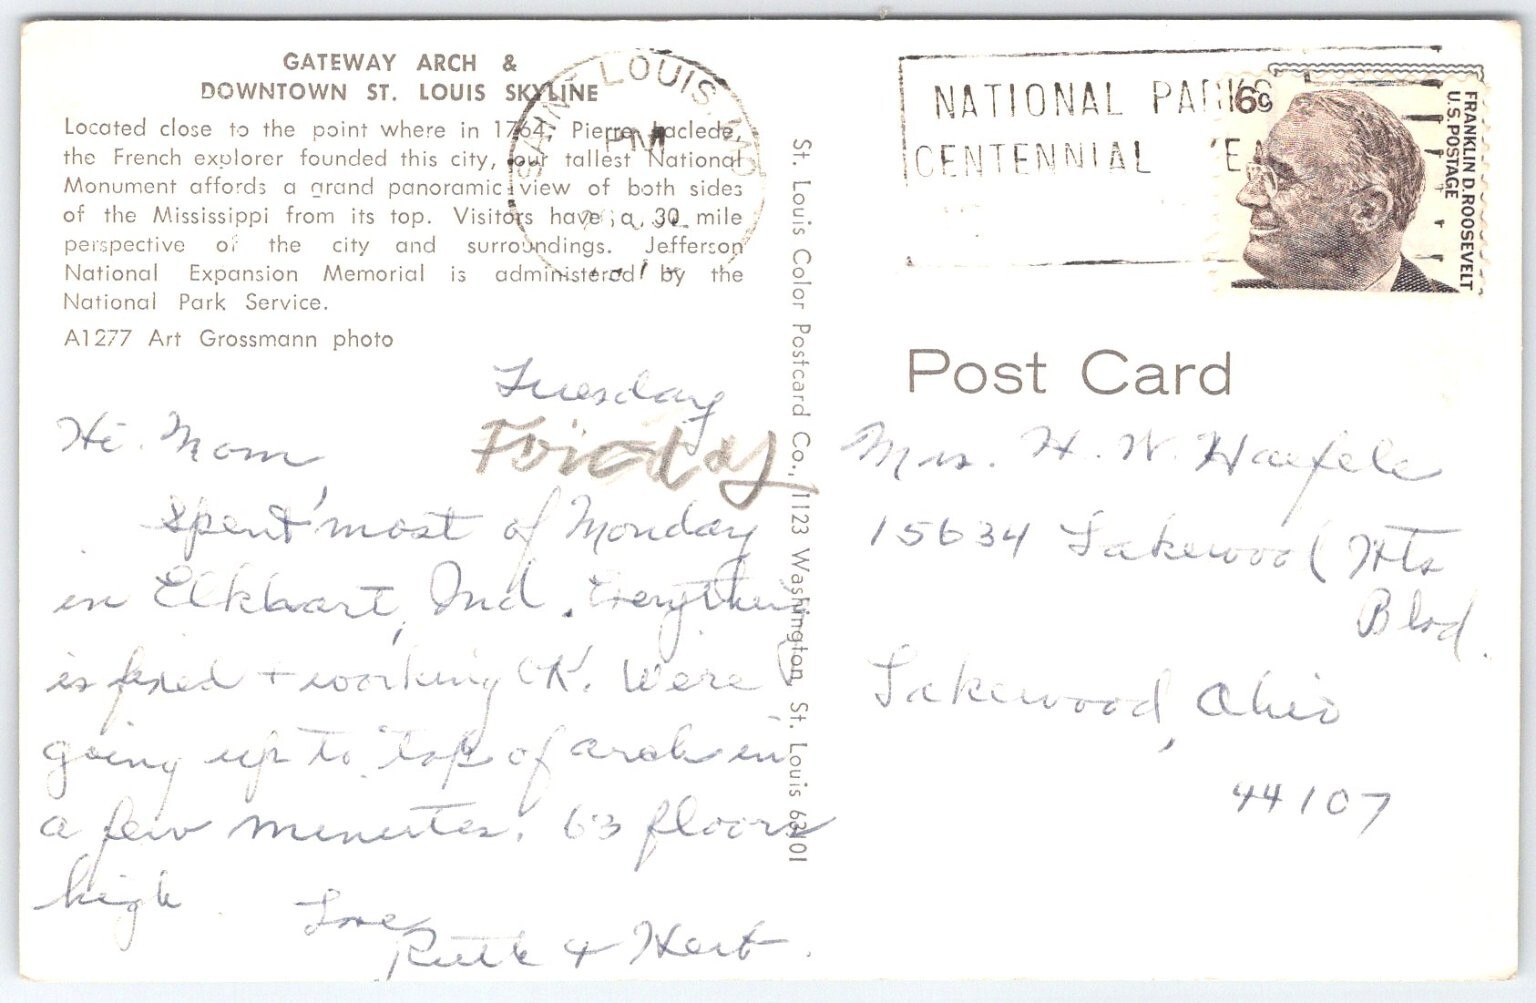 GATEWAY ARCH &
DOWNTOWN ST. LOUIS SKYLINE
Located close to the point where in 1764, Pierre Laclede,
the French explorer founded this city, our tallest National
Monument affords a grand panoramic view of both sides
of the Mississippi from its top. Visitors have a 30 mile
perspective of the city and surroundings. Jefferson
National Expansion Memorial is administered by the
National Park Service.
A1277 Art Grossmann photo
Tuesday
Friday
Hi Mom,
Spent most of Monday
in Elkhart, Ind. Everything
is fixed + working OK. Were
going up to top of arch in
a few minutes. 63 floors
high.
Love,
Ruth & Herb.
St. Louis Color Postcard Co., 1123 Washington, St. Louis 63101
SAINT LOUIS, MO
PM
NATIONAL PARKS
CENTENNIAL YEAR
6¢
FRANKLIN D. ROOSEVELT
U.S. POSTAGE
Post Card
Mrs. H. W. Haefele
15634 Lakewood Hts
Blvd.
Lakewood, Ohio
44107